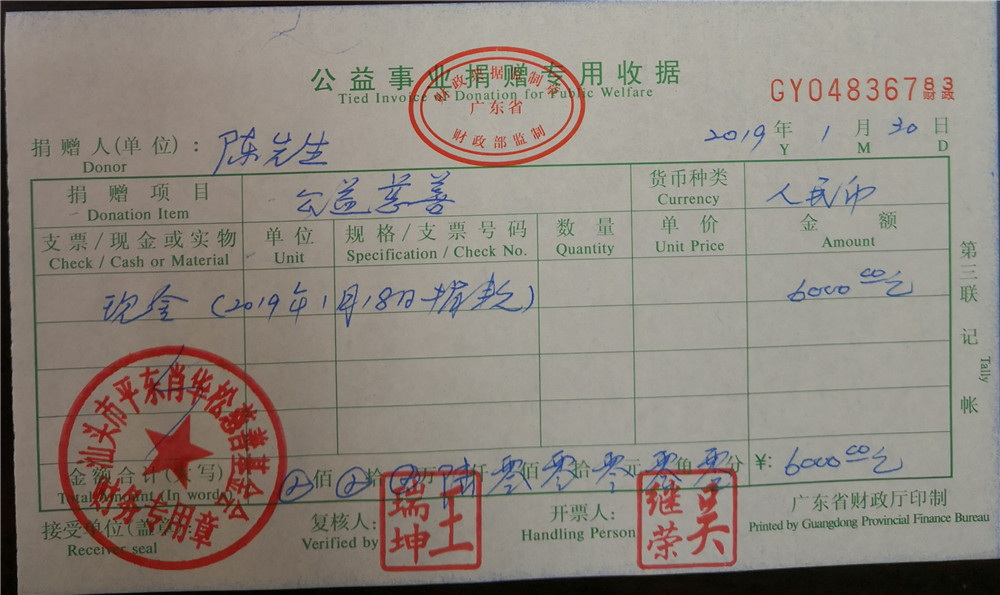 公益事业捐赠专用收据
Tied Invoice of Donation for Public Welfare
财政票据监制章
广东省
财政部监制
GY04836783
财政
捐赠人(单位)： 陈先生
Donor
2019 年 1 月 30 日
Y M D
捐赠项目 公益慈善 货币种类 人民币
Donation Item Currency
支票/现金或实物 单位 规格/支票号码 数量 单价 金额
Check / Cash or Material Unit Specification / Check No. Quantity Unit Price Amount
现金(2019年1月18日捐款) 6000.00元
第三联 记帐
Tally
金额合计(大写) 佰 拾 万 陆仟 零佰 零拾 零元 零角 零分 ¥: 6000.00元
Total Amount (In words)
汕头市平东肖华松慈善基金会
财务专用章
接受单位(盖章) 复核人: 开票人: 广东省财政厅印制
Receiver seal Verified by Handling Person Printed by Guangdong Provincial Finance Bureau
王瑞坤
吴继荣